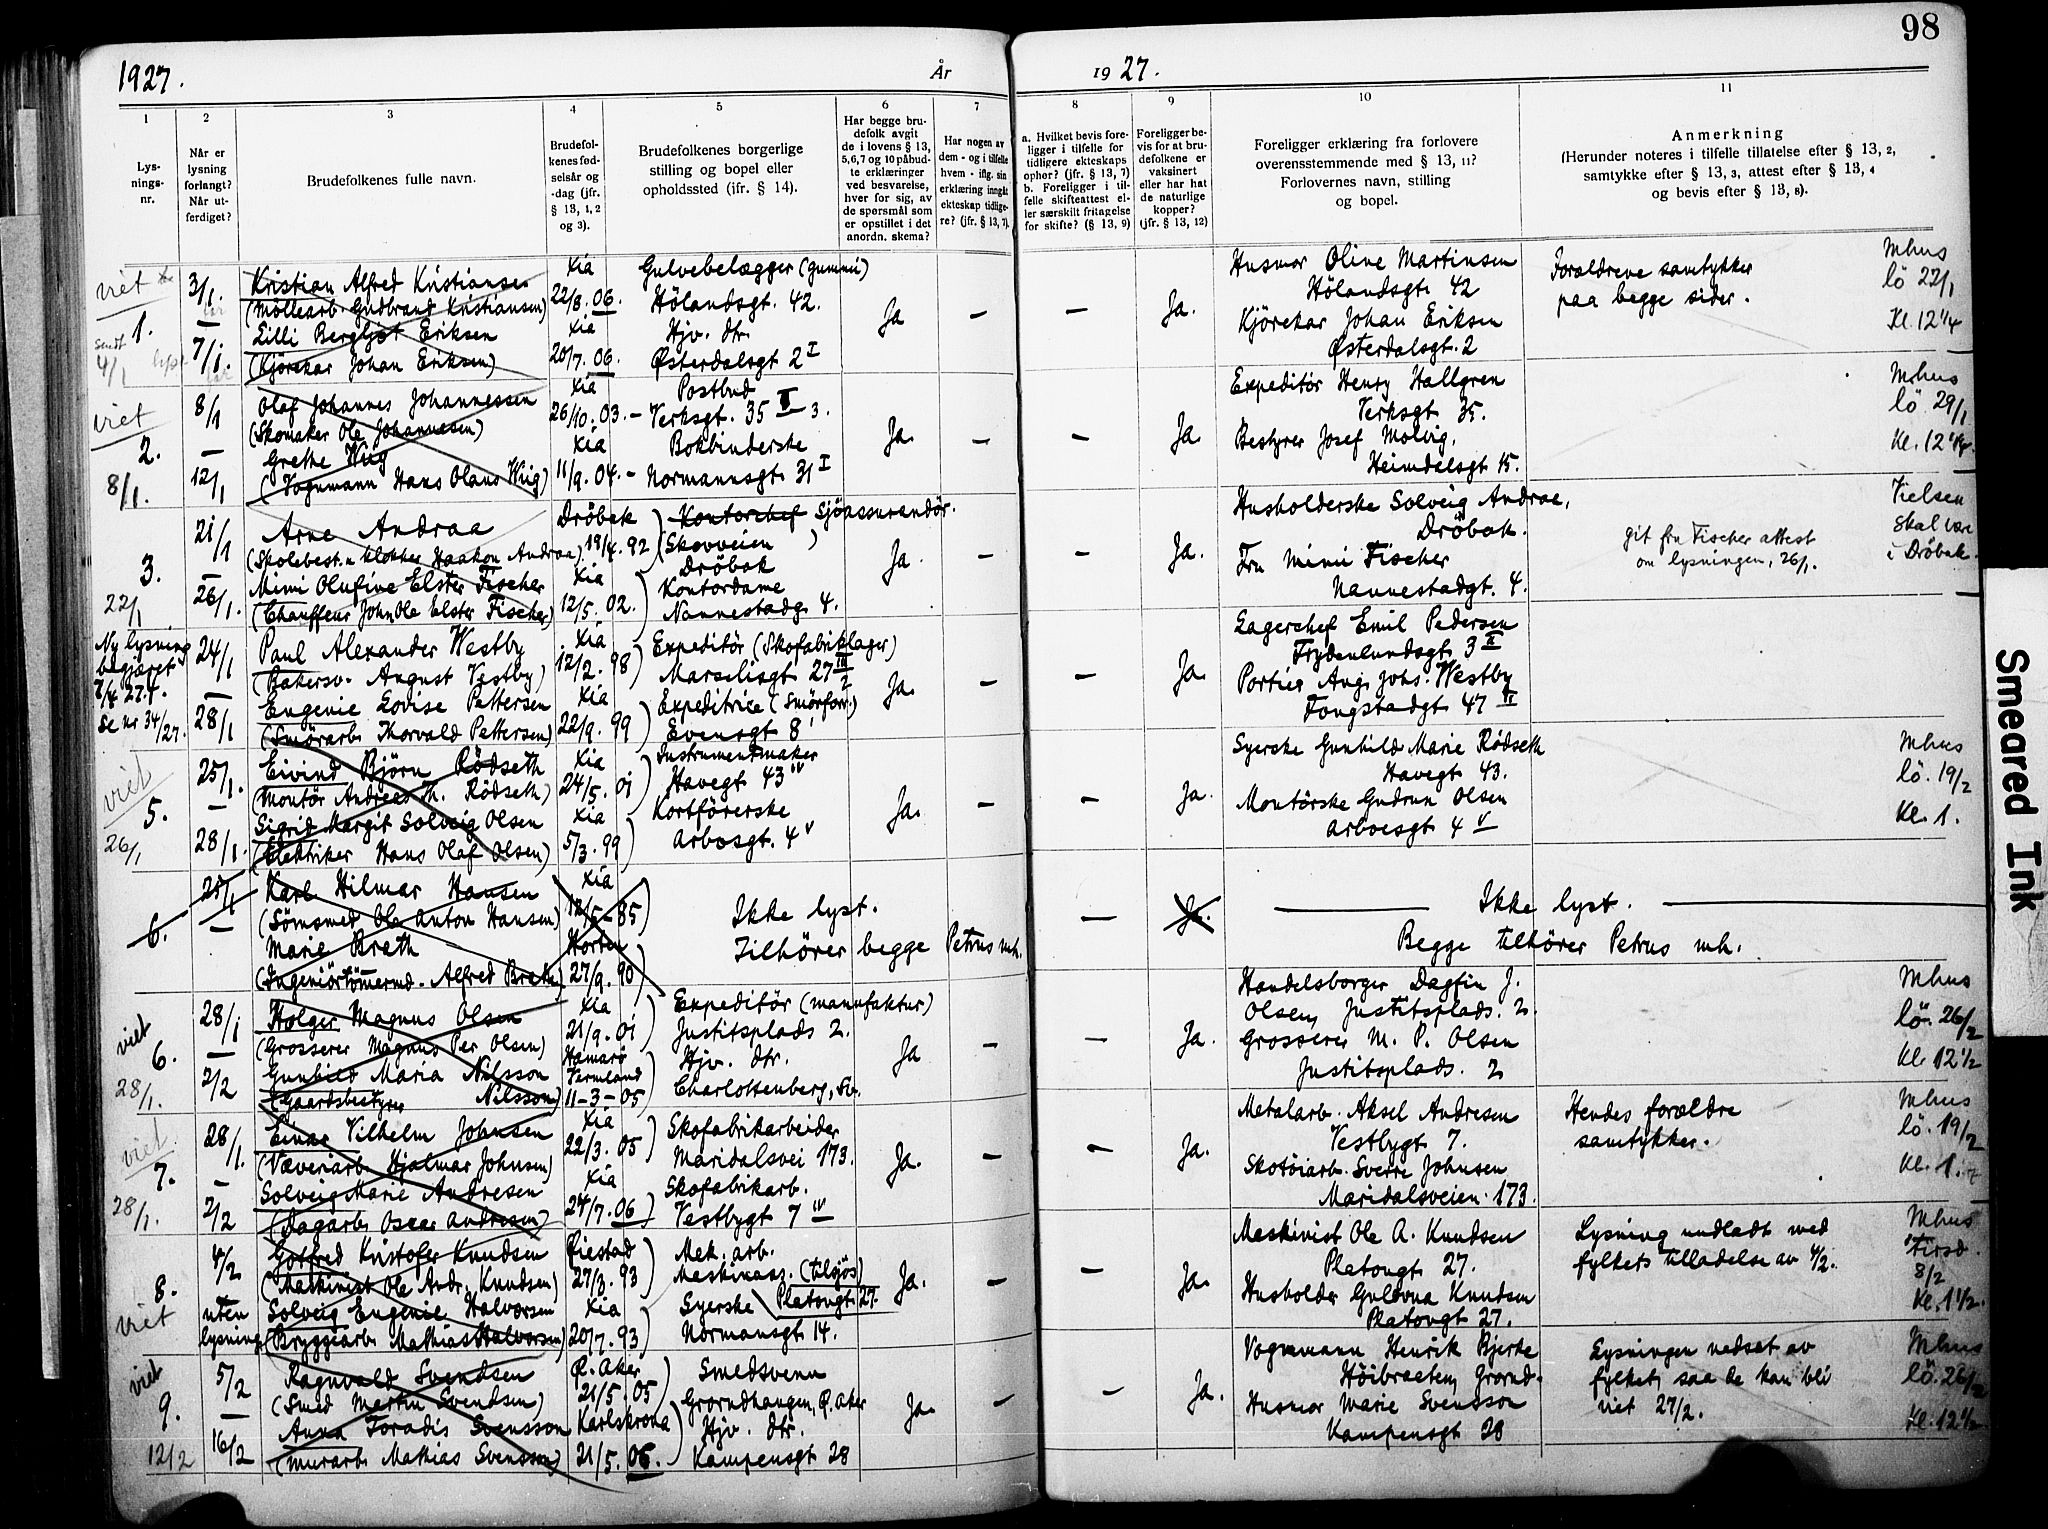 98
1927.
År
19 27.
1
2
3
4
5
6
7
8
9
10
11
Lys-
nings-
nr.
Når er
lysning
forlangt?
Når ut-
ferdiget?
Brudefolkenes fulle navn.
Brudefol-
kenes fød-
selsår og
-dag (jfr.
§ 13, 1, 2
og 3).
Brudefolkenes borgerlige
stilling og bopel eller
opholdssted (ifr. § 14).
Har begge bru-
defolk avgit
de i lovens § 13,
5,6,7 og 10 påbud-
te erklæringer
ved besvarelse,
hver for sig, av
de spørsmål som
er opstillet i det
anordn. skema?
Har nogen av
dem - og i tilfelle
hvem - iflg. sin
erklæring inngått
ekteskap tidlige-
re? (jfr. § 13, 7).
a. Hvilket bevis fore-
ligger i tilfelle for
tidligere ekteskaps
ophør? (jfr. § 13, 7)
b. Foreligger i til-
felle skifteattest el-
ler særskilt fritagelse
for skifte? (§ 13, 9)
Foreligger be-
vis for at bru-
defolkene er
vaksinert
eller har hat
de naturlige
kopper?
(jfr. § 13, 12)
Foreligger erklæring fra forlovere
overensstemmende med § 13, 11?
Forlovernes navn, stilling
og bopel.
Anmerkning
(Herunder noteres i tilfelle tillatelse efter § 13, 2,
samtykke efter § 13, 3, attest efter § 13, 4
og bevis efter § 13, 8).
viet
1.
sendt
4/1
3/1.
—
7/1.
Kristian Alfred Kristiansen
(Möllearb. Gudbrand Kristiansen)
Lilli Bergljot Eriksen
(Kjörekar Johan Eriksen)
Xia
22/8. 06.
Xia
20/7. 06.
Gulvebelægger (gummi)
Hölandsgt. 42.
Hjv. dtr.
Østerdalsgt 2 I
Ja
—
—
Ja.
Husmor Oline Martinsen
Hölandsgt 42
Kjörekar Johan Eriksen
Østerdalsgt. 2
Forældrene samtykker
paa begge sider.
Mhus
lö 22/1
Kl. 12 1/4
viet
2.
8/1.
8/1
—
12/1
Olaf Johannes Johannessen
(Skomaker Ole Johannesen)
Grethe Wiig
(Vognmann Hans Olaus Wiig)
Xia
26/10. 03. –
Xia
11/9. 04. –
Postbud
Verksgt. 35 II – 3.
Bokbinderske
Normannsgt 31 I
Ja.
—
—
Ja.
Expeditör Henry Hallgren
Verksgt 35.
Bestyrer Josef Molvig.
Heimdalsgt 15.
Mhus
lö 29/1
Kl. 12
3.
22/1
21/1
—
26/1.
Arne Andraa
(Skolebest. u klokker Haakon Andraa)
Mimi Olufine Elster Fischer
(Chauffeur John Ole Elster Fischer)
Dröbak
19/4. 92
Xia
12/5. 02.
Kontorchef Sjöassurandör.
(Skovveien)
Dröbak
Kontordame
Nannestadg 4.
Ja.
—
—
Ja.
Husholderske Solveig Andraa,
Dröbak.
Fru Mimi Fischer
Nannestadgt. 4.
git fru Fischer attest
om lysningen, 26/1.
Vielsen
skal være
i Dröbak.
Ny lysning
begjæret
7/4 27.
Se nr 34/27.
24/1
—
28/1
Paul Alexander Westby
(Bakersv. August Vestby)
Eugenie Lovise Pettersen
(Smörarb. Thorvald Pettersen)
Xia
12/2. 98)
Xia
22/9. 99)
Expeditör (Skofabriklager)
Marselisgt 27 III/2
Expeditrice (Smörforr.)
Evensgt 8
Ja.
—
—
Ja.
Lagerchef Emil Pedersen
Frydenlundsgt 3 II
Portier Aug. Johs. Westby
Tongstadgt 47 II
viet
5.
26/1
25/1.
—
28/1.
Eivind Björn Rödseth
(Montör Andreas Th. Rödseth)
Sigrid Margit Solveig Olsen
(Elektriker Hans Olaf Olsen)
Xia
24/5. 01
Xia
5/3. 99)
Instrumentmaker
Havegt 43 IV
Kortförerske
Arbosgt. 4 V
Ja.
—
—
Ja.
Syerske Gunhild Marie Rødseth
Havegt 43.
Montörske Gudrun Olsen
Arboesgt 4 V
Mhus
lö. 19/2
Kl. 1.
6.
25/1
—
Karl Hilmar Hansen
(Sömsmed Ole Anton Hansen)
Marie Breth
(Ingeniörtömermd. Alfred Breth)
Xia
12/5 – 85)
Horten
27/9. 90)
Ikke lyst.
Tilhörer begge Petrus mh.
—
Ja.
Ikke lyst.
Begge tilhörer Petrus mh.
viet
6.
28/1.
28/1
—
2/2
Holger Magnus Olsen
(Grosserer Magnus Per Olsen)
Gunhild Maria Nilsson
(Gaardsbestyrer Nilsson)
Xia
21/9. 01
Hamarö
Vermland
11 – 3 – 05)
Expeditör (manufaktur)
Justitsplads 2.
Hjv. dtr.
Charlottenberg, Sv.
Ja
—
—
Ja.
Handelsborger Dagfin J.
Olsen, Justitsplads. 2.
Grosserer M. P. Olsen
Justitsplads. 2
Mhus
lö. 26/2
Kl. 12 1/2
viet
7.
28/1.
28/1.
—
2/2
Einar Vilhelm Johnsen
(Væveriarb. Hjalmar Johnsen)
Solveig Marie Andresen
(Dagarb. Oscar Andresen)
Xia
22/3. 05)
Xia
24/7. 06)
Skofabrikarbeider
Maridalsvei 173.
Skofabrikarb.
Vestbygt 7 IV
Ja.
—
—
Ja.
Metalarb. Aksel Andresen
Vestbygt 7.
Skotöiarb. Sverre Johnsen
Maridalsveien 173.
Hendes forældre
samtykker.
Mhus
lö. 19/2
Kl. 1.
8.
viet
4/2
uten
lysning
Gotfred Kristofer Knudsen
(Maskinist Ole Andr. Knudsen)
Solveig Eugenie Halvorsen
(Bryggearb. Mathias Halvorsen)
27/3. 93)
Xia
20/7. 93)
Mek. arb.
Maskinass. (tilsjös)
Platougt 27.
Syerske
Normansgt 14.
Ja.
—
—
Ja.
Maskinist Ole A. Knudsen
Platougt 27.
Husholder Gulovna Knudsen
Platougt 27.
Lysning undladt med
fylkets tilladelse av 4/2.
Mhus
Tirsd.
8/2
Kl. 1 1/2.
viet
9.
12/2
5/2
—
16/2
Ragnvald Svendsen
(Smed Martin Svendsen)
Anna Toradis Svensson
(Murarb. Mathias Svensson)
Ø. Aker
21/5. 05)
Karlskrona
21/5. 06.
Smedsvenn
Grorudhaugen, Ø. Aker
Hjv. dtr.
Kampensgt 28
Ja.
—
—
Ja.
Vognmann Henrik Bjerke
Höibraaten, Grorud.
Husmor Marie Svensson
Kampensgt 28
Lysningen nedsat av
fylket, saa de kan bli
viet 27/2.
Mhus
lö. 26/2
Kl. 12 1/2
Smeared Ink